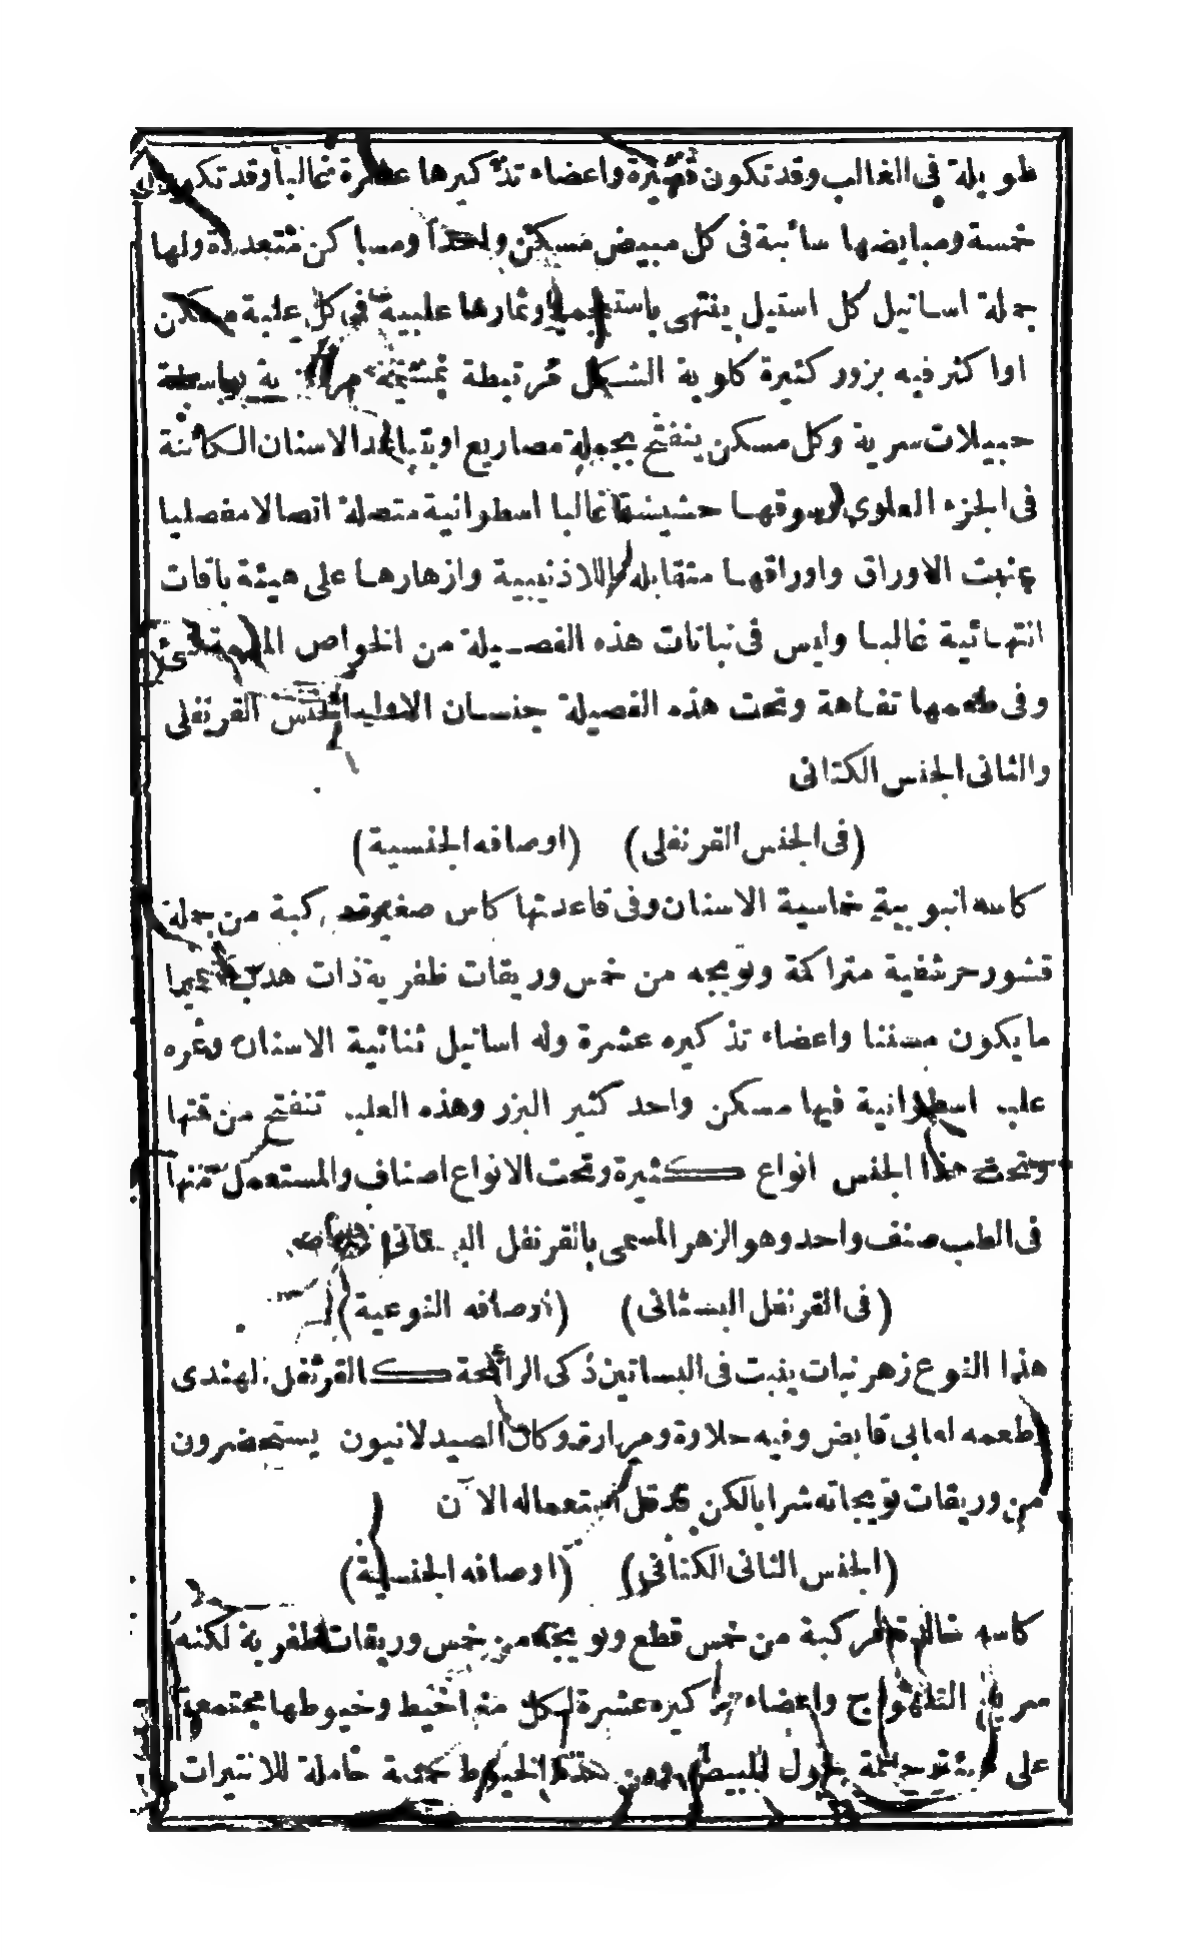 طويلة فى الغالب وقد تكون قصيرة واعضاء تذكيرها عشرة غالبا وقد تكون
خمسة ومبايضها سائبة فى كل مبيض مسكن واحدا ومساكن متعددة ولها
جملة اساتيل كل استيل ينتهى باستجمة وثمارها علبية فى كل علبة مسكن
اوا كثر فيه بزور كثيرة كلوية الشكل مرتبطة بمشيمة مركزية بواسطة
حبيلات سرية وكل مسكن ينفتح بجملة مصاريع او بتباعد الاسنان الكائنة
فى الجزء العلوى وسوقها حشيشية غالبا اسطوانية متصلة اتصالا مفصليا
بمنبت الاوراق واوراقها متقابلة بلا اذنيبية وازهارها على هيئة باقات
انتهائية غالبا وليس فى نباتات هذه الفصيلة من الخواص المهمة شئ
وفى طعمها تفاهة وتحت هذه الفصيلة جنسان الاول الجنس القرنفلى
والثانى الجنس الكتانى
(فى الجنس القرنفلى) (اوصافه الجنسية)
كاسه انبوبية خماسية الاسنان وفى قاعدتها كاس صغير مركبة من جملة
قشور حرشفية متراكمة وتويجه من خمس وريقات ظفرية ذات هدب كثيرا
ما يكون مسننا واعضاء تذكيره عشرة وله اساتيل ثنائية الاسنان وثمره
علب اسطوانية فيها مسكن واحد كثير البزر وهذه العلب تنفتح من قتها
وتحت هذا الجنس انواع كثيرة وتحت الانواع اصناف والمستعمل منها
فى الطب صنف واحد وهو الزهر المسمى بالقرنفل البستانى
(فى القرنفل البستانى) (اوصافه النوعية)
هذا النوع زهر نبات ينبت فى البساتين ذكى الرائحة كالقرنفل الهندى
طعمه لعابى قابض وفيه حلاوة ومرارة وكان الصيدلانيون يستحضرون
من وريقات تويجاته شرابا لكن قد قل استعماله الآن
(الجنس الثانى الكتانى) (اوصافه الجنسية)
كاسه خالدة مركبة من خمس قطع وتويجه من خمس وريقات ظفرية لكنه
سريع واعضاء تذكيره عشرة لكل منها خيط وخيوطها مجتمعة
على هيئة حول المبيض ومن هذه الخيوط خمسة حاملة للانتيرات